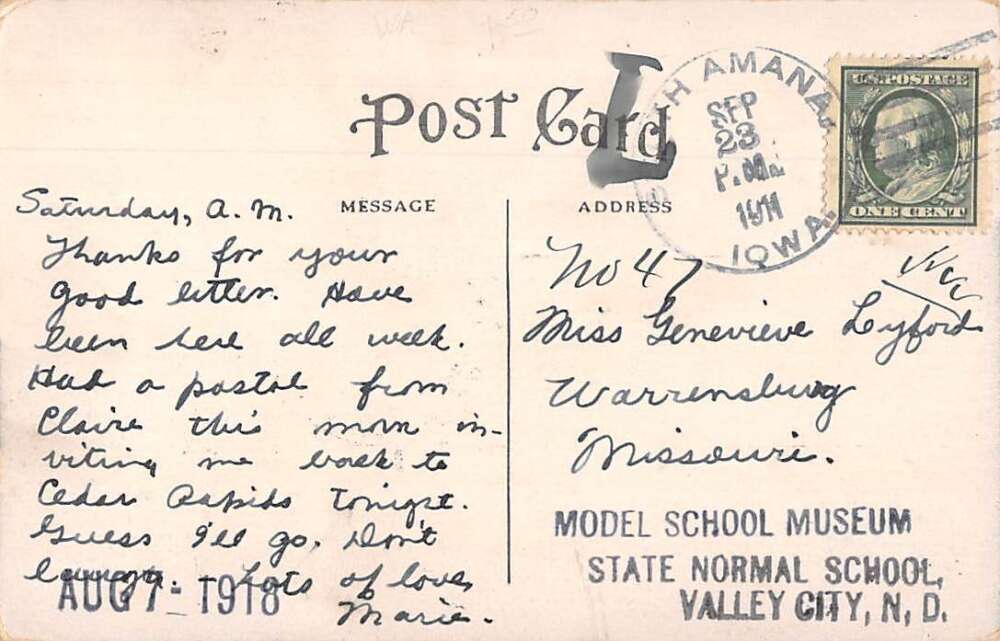 Post Card
TH AMANA,
IOWA.
SEP
23
P.M.
1911
U.S. POSTAGE
ONE CENT
MESSAGE
ADDRESS
Saturday, A.M.
Thanks for your
good letter. Have
been here all week.
Had a postal from
Claire this morn in-
viting me back to
Cedar Rapids tonight.
Guess I'll go. Don't
Lots of love,
Marie.
AUG 7 - 1918
No 47
Miss Genevieve Lyford
Warrensburg
Missouri.
MODEL SCHOOL MUSEUM
STATE NORMAL SCHOOL,
VALLEY CITY, N. D.